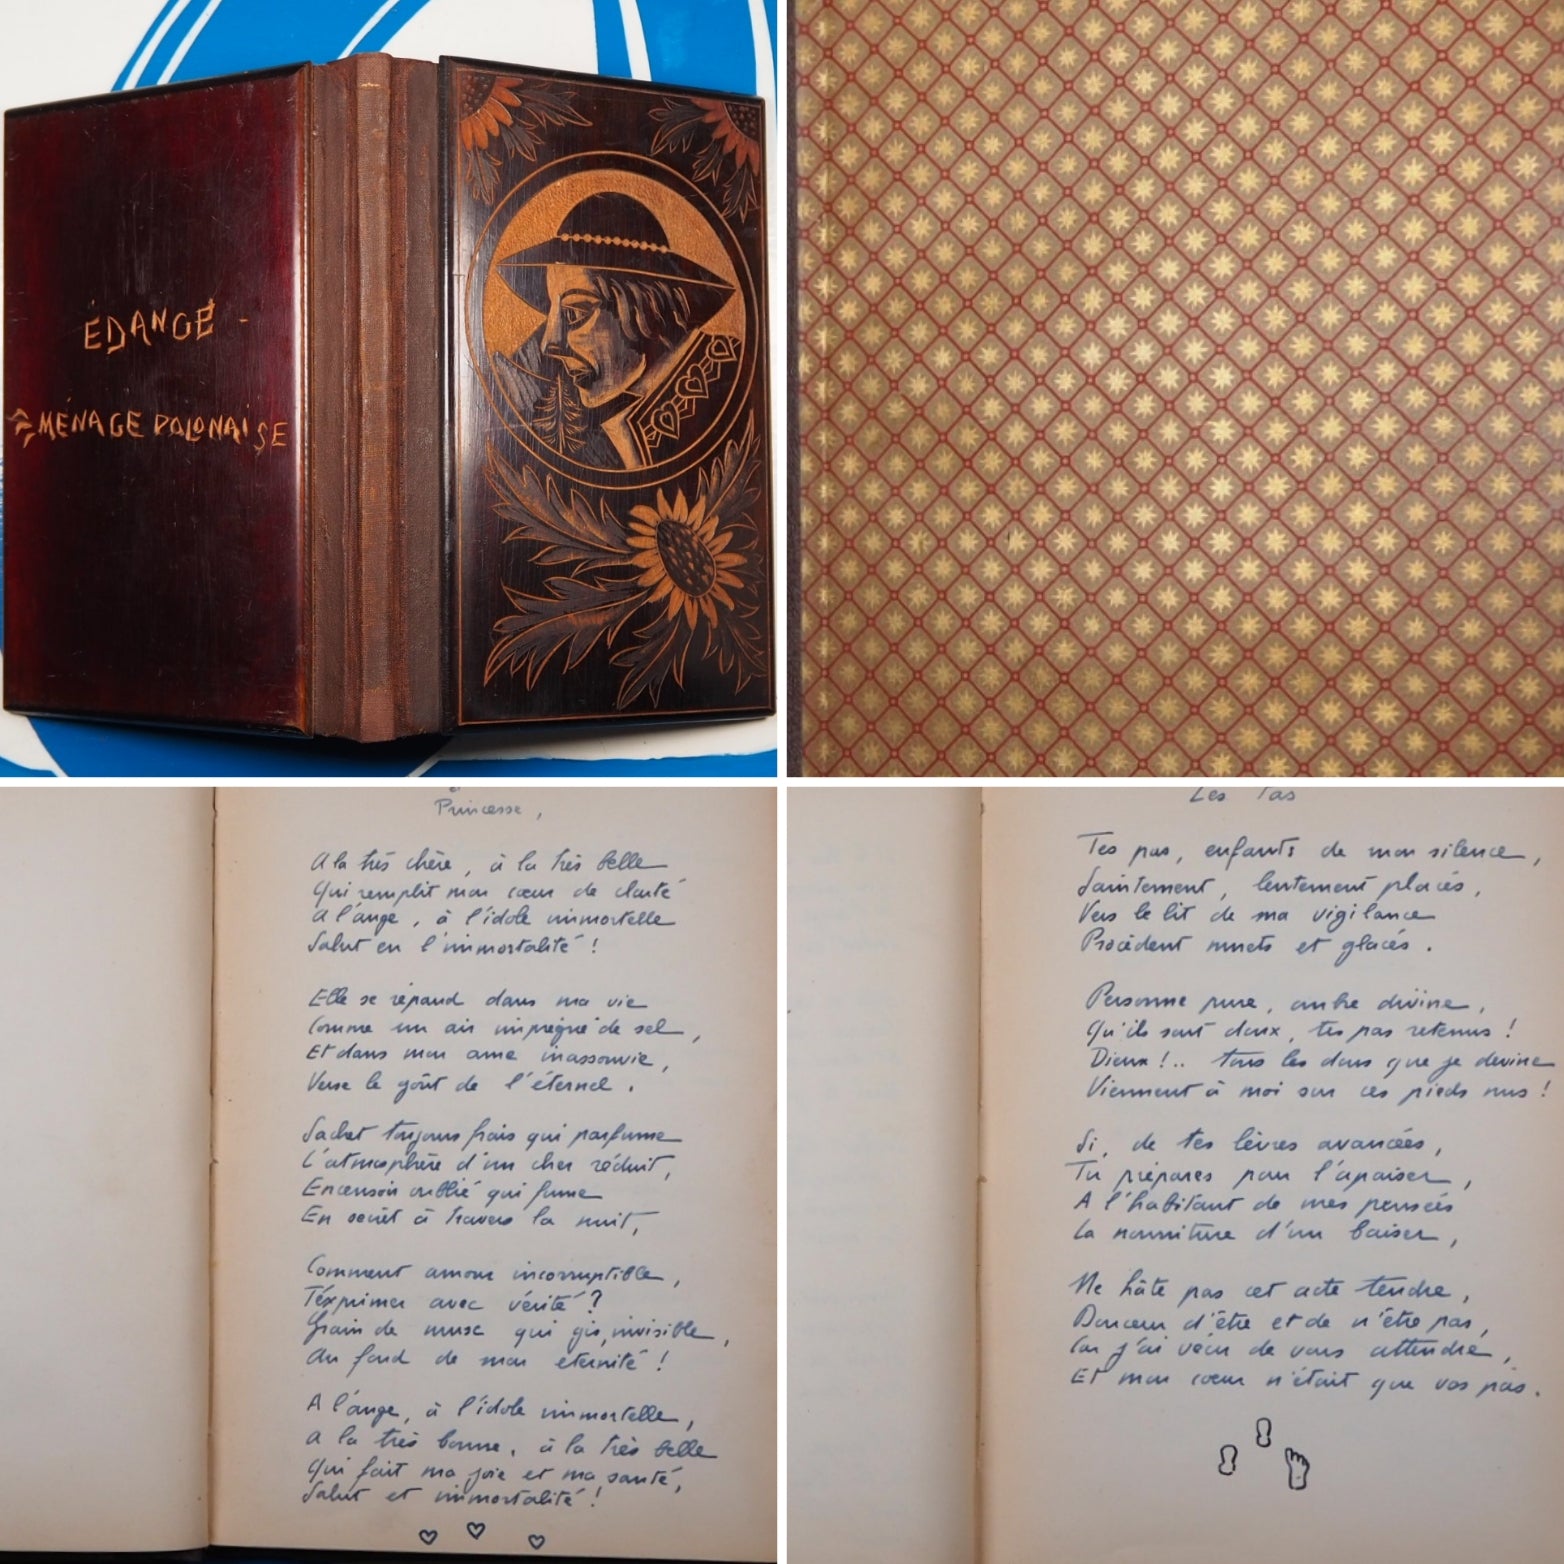 ÉDANGÉ -
MÉNAGE POLONAISE
Princesse,
A la très chère, à la très belle
Qui remplit mon cœur de clarté
A l'ange, à l'idole immortelle
Salut en l'immortalité !
Elle se répand dans ma vie
Comme un air imprégné de sel,
Et dans mon ame inassouvie,
Verse le goût de l'éternel.
Sachet toujours frais qui parfume
L'atmosphère d'un cher réduit,
Encensoir oublié qui fume
En secret à travers la nuit,
Comment amour incorruptible,
T'éxprimer avec vérité ?
Grain de musc qui gis, invisible,
Au fond de mon eternité !
A l'ange, à l'idole immortelle,
A la très bonne, à la très belle
Qui fait ma joie et ma santé,
Salut et immortalité !
Les Pas
Tes pas, enfants de mon silence,
Saintement, lentement placés,
Vers le lit de ma vigilance
Procèdent muets et glacés.
Personne pure, ombre divine,
Qu'ils sont doux, tes pas retenus !
Dieux !.. tous les dons que je devine
Viennent à moi sur ces pieds nus !
Si, de tes lèvres avancées,
Tu prépares pour l'apaiser,
A l'habitant de mes pensées
La nourriture d'un baiser,
Ne hâte pas cet acte tendre,
Douceur d'être et de n'être pas,
Car j'ai vécu de vous attendre,
Et mon cœur n'était que vos pas.